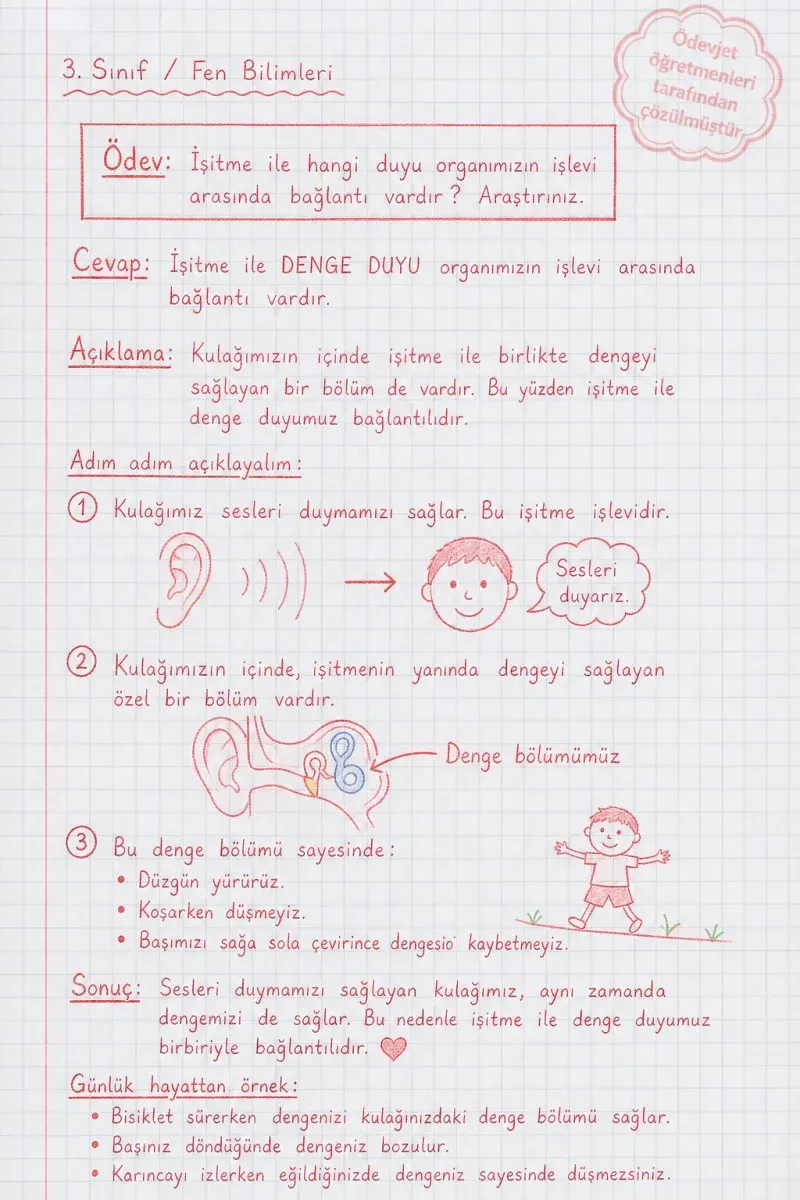 Ödevjet
öğretmenleri
tarafından
çözülmüştür
3. Sınıf / Fen Bilimleri
Ödev: İşitme ile hangi duyu organımızın işlevi
arasında bağlantı vardır? Araştırınız.
Cevap: İşitme ile DENGE DUYU organımızın işlevi arasında
bağlantı vardır.
Açıklama: Kulağımızın içinde işitme ile birlikte dengeyi
sağlayan bir bölüm de vardır. Bu yüzden işitme ile
denge duyumuz bağlantılıdır.
Adım adım açıklayalım:
1 Kulağımız sesleri duymamızı sağlar. Bu işitme işlevidir.
Sesleri
duyarız.
2 Kulağımızın içinde, işitmenin yanında dengeyi sağlayan
özel bir bölüm vardır.
Denge bölümümüz
3 Bu denge bölümü sayesinde:
• Düzgün yürürüz.
• Koşarken düşmeyiz.
• Başımızı sağa sola çevirince dengesio kaybetmeyiz.
Sonuç: Sesleri duymamızı sağlayan kulağımız, aynı zamanda
dengemizi de sağlar. Bu nedenle işitme ile denge duyumuz
birbiriyle bağlantılıdır.
Günlük hayattan örnek:
• Bisiklet sürerken dengenizi kulağınızdaki denge bölümü sağlar.
• Başınız döndüğünde dengeniz bozulur.
• Karıncayı izlerken eğildiğinizde dengeniz sayesinde düşmezsiniz.